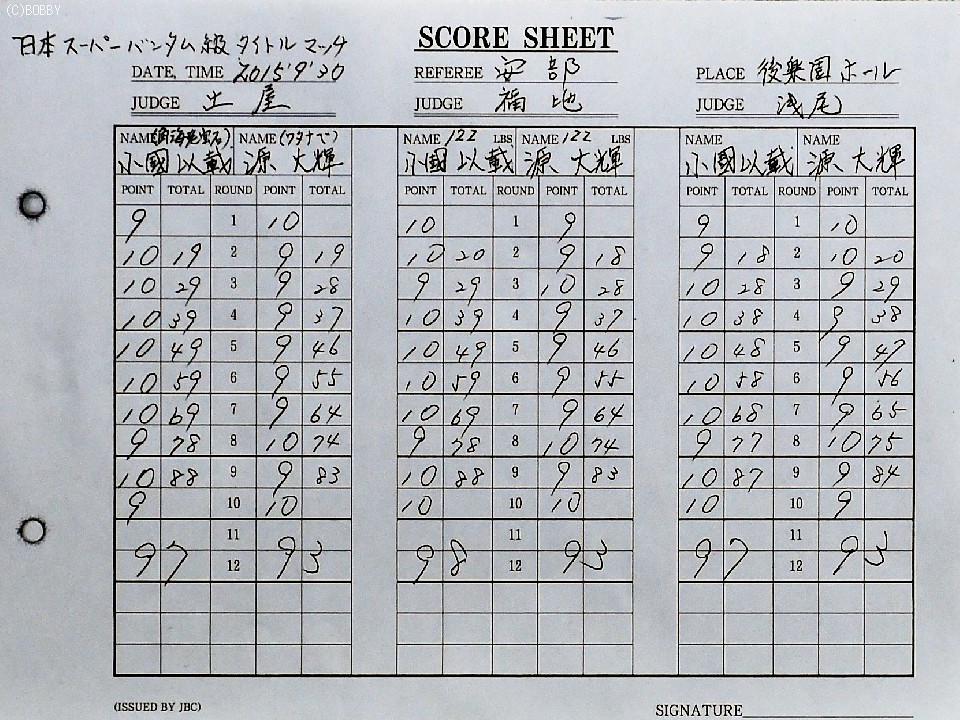 (C)BOBBY
日本スーパーバンタム級タイトルマッチ
SCORE SHEET
DATE, TIME 2015'9'30 REFEREE 安部 PLACE 後楽園ホール
JUDGE 土屋 JUDGE 福地 JUDGE 浅尾
NAME (角海老宝石) NAME (ワタナベ) NAME 122 LBS NAME 122 LBS NAME NAME
小國以載 源 大輝 小國以載 源 大輝 小國以載 源 大輝
POINT TOTAL ROUND POINT TOTAL POINT TOTAL ROUND POINT TOTAL POINT TOTAL ROUND POINT TOTAL
9 1 10 10 1 9 9 1 10
10 19 2 9 19 10 20 2 9 18 9 18 2 10 20
10 29 3 9 28 9 29 3 10 28 10 28 3 9 29
10 39 4 9 37 10 39 4 9 37 10 38 4 9 38
10 49 5 9 46 10 49 5 9 46 10 48 5 9 47
10 59 6 9 55 10 59 6 9 55 10 58 6 9 56
10 69 7 9 64 10 69 7 9 64 10 68 7 9 65
9 78 8 10 74 9 78 8 10 74 9 77 8 10 75
10 88 9 9 83 10 88 9 9 83 10 87 9 9 84
9 10 10 10 10 10 10 10 9
11 11 11
97 12 93 98 12 93 97 12 93
(ISSUED BY JBC) SIGNATURE